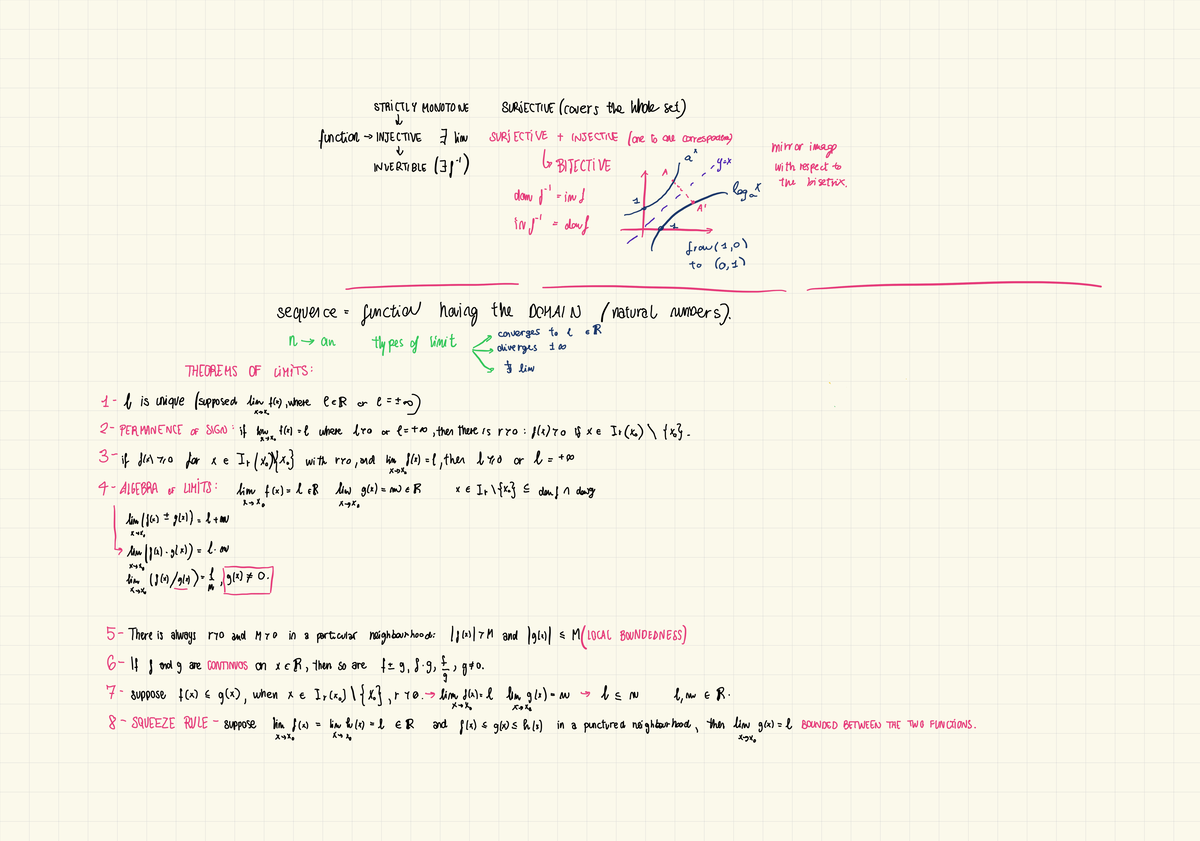 STRICTLY MONOTONE SURJECTIVE (covers the whole set)
↓
function → INJECTIVE ∃ lim SURJECTIVE + INJECTIVE (one to one correspondence)
↓
INVERTIBLE (∃f⁻¹)
↳ BIJECTIVE
dom f⁻¹ = im f
im f⁻¹ = dom f
aˣ
y=x
A
logₐx
A'
1
1
from (1,0)
to (0,1)
mirror image
with respect to
the bisetrix.
sequence = function having the DOMAIN (natural numbers).
n → an types of limit
converges to l ∈ ℝ
diverges ±∞
∄ lim
THEOREMS OF LIMITS:
1- l is unique (supposed lim x→x₀ f(x), where l∈ℝ or l = ±∞)
2- PERMANENCE OF SIGN: if lim x→x₀ f(x) = l where l>0 or l=+∞, then there is r>0 : f(x)>0 if x ∈ Iᵣ(x₀) \ {x₀}.
3- if f(x) ≥0 for x ∈ Iᵣ(x₀)\{x₀} with r>0, and lim x→x₀ f(x)=l, then l ≥0 or l = +∞
4- ALGEBRA OF LIMITS: lim x→x₀ f(x) = l ∈ℝ lim x→x₀ g(x) = m ∈ ℝ x ∈ Iᵣ\{x₀} ⊆ dom f ∩ dom g
lim x→x₀ (f(x) ± g(x)) = l + m
lim x→x₀ (f(x) · g(x)) = l · m
lim x→x₀ (f(x)/g(x)) = l/m, g(x) ≠ 0.
5- There is always r>0 and M>0 in a particular neighbourhood: |f(x)| > M and |g(x)| ≤ M (LOCAL BOUNDEDNESS)
6- If f and g are CONTINUOS on x ⊂ ℝ, then so are f ± g, f·g, f/g, g≠0.
7- suppose f(x) ≤ g(x), when x ∈ Iᵣ(x₀) \ {x₀}, r >0. → lim x→x₀ f(x)=l lim x→x₀ g(x) = m → l ≤ m l, m ∈ ℝ.
8- SQUEEZE RULE - suppose lim x→x₀ f(x) = lim x→x₀ h(x) = l ∈ ℝ and f(x) ≤ g(x) ≤ h(x) in a punctured neighbourhood, then lim x→x₀ g(x) = l BOUNDED BETWEEN THE TWO FUNCTIONS.